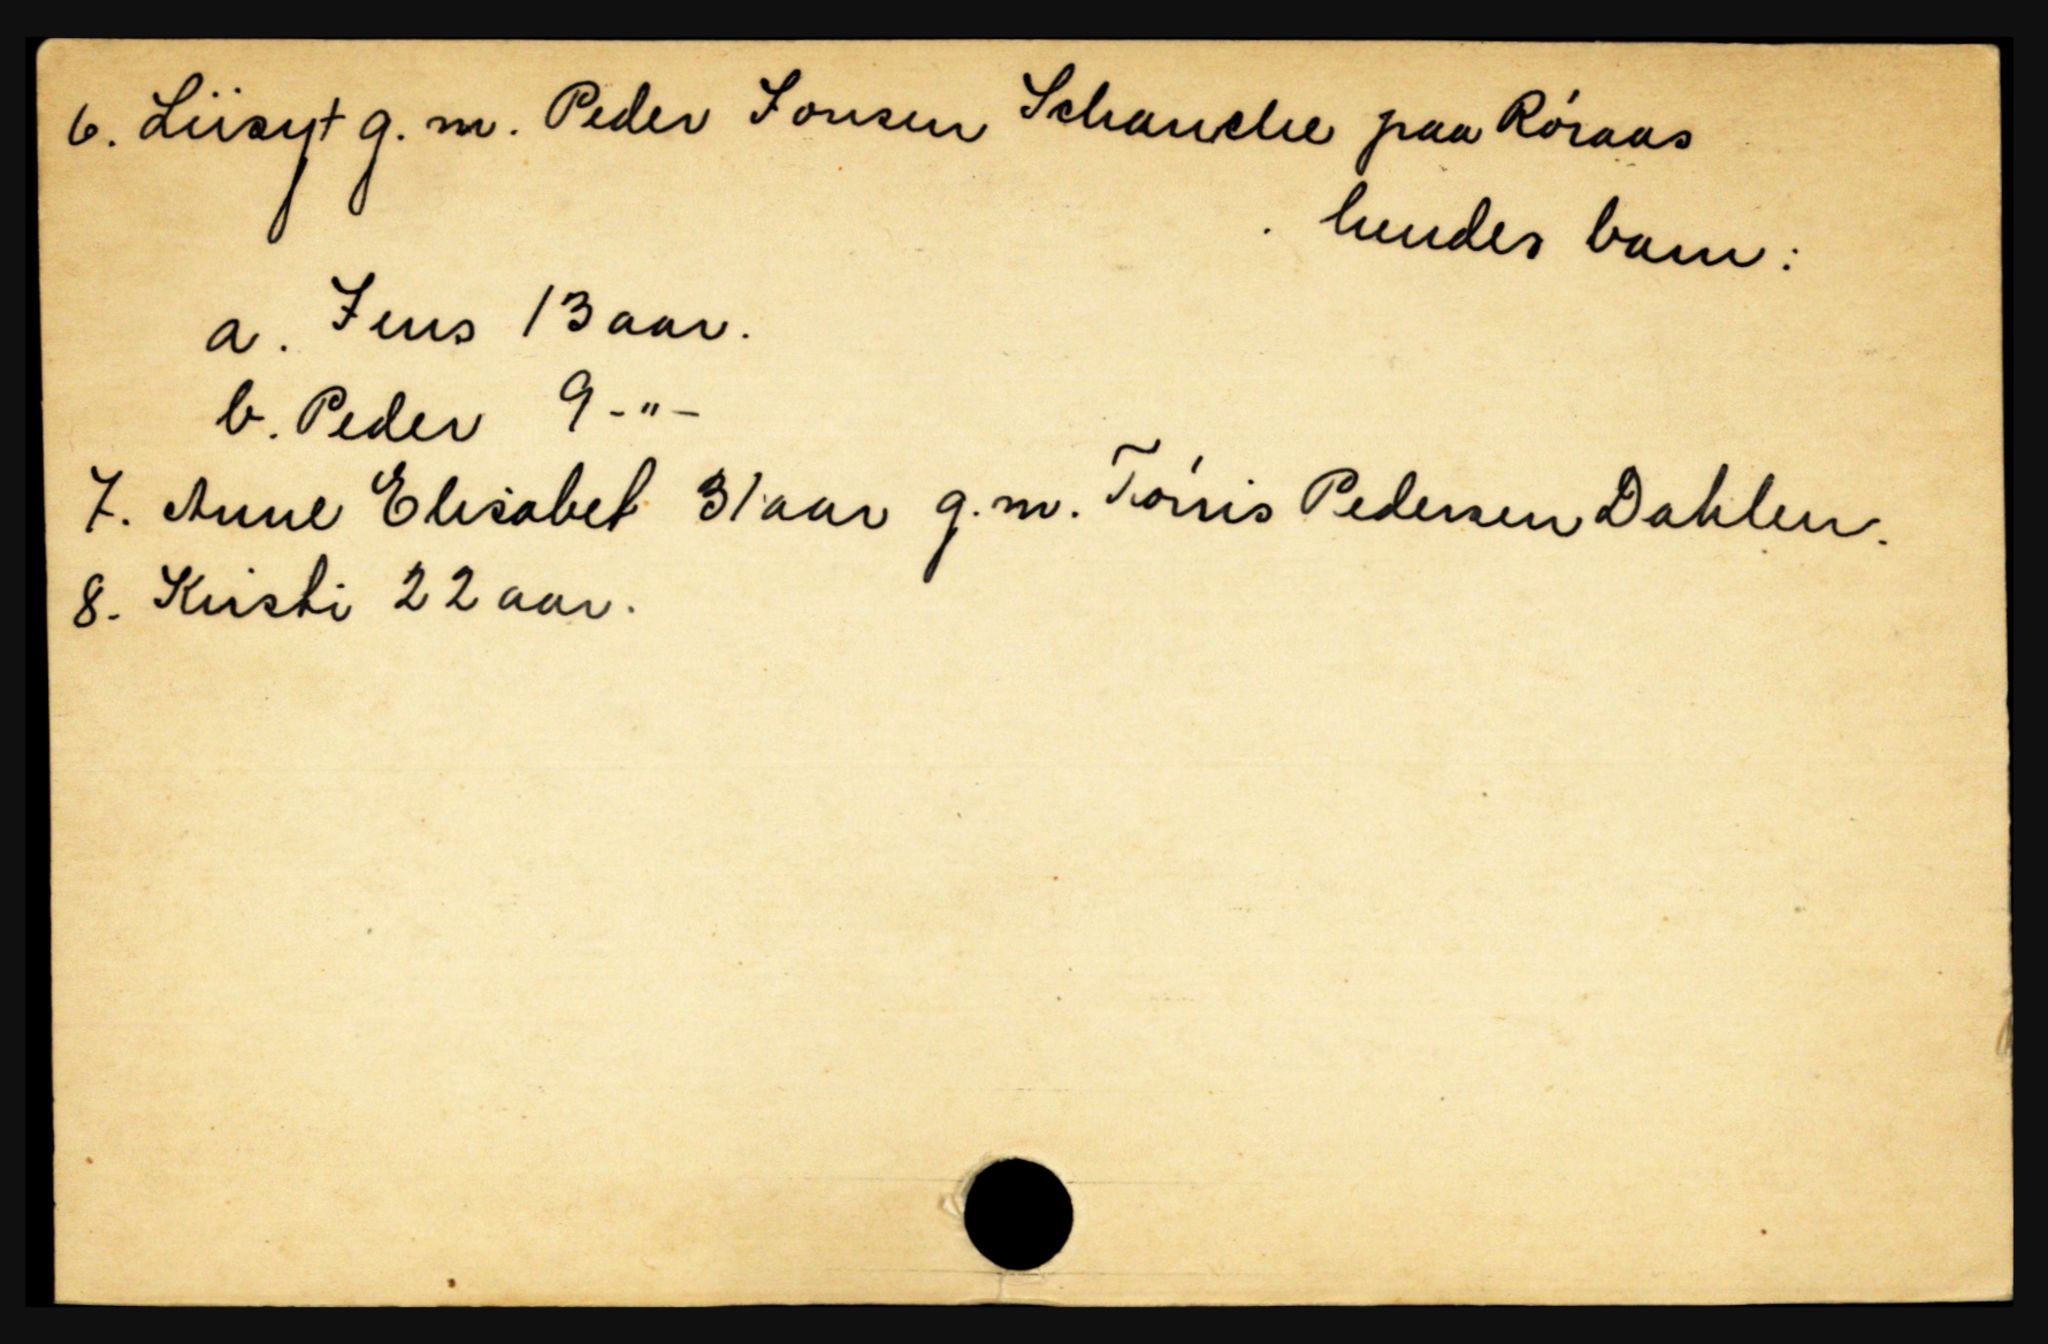 6. Liisyt g. m. Peder Jonsen Schanche paa Røraas
hendes barn:
a. Jens 13 aar.
b. Peder 9 -"-
7. Anne Elisabet 31 aar g. m. Tørris Pedersen Dahlen.
8. Kirsti 22 aar.